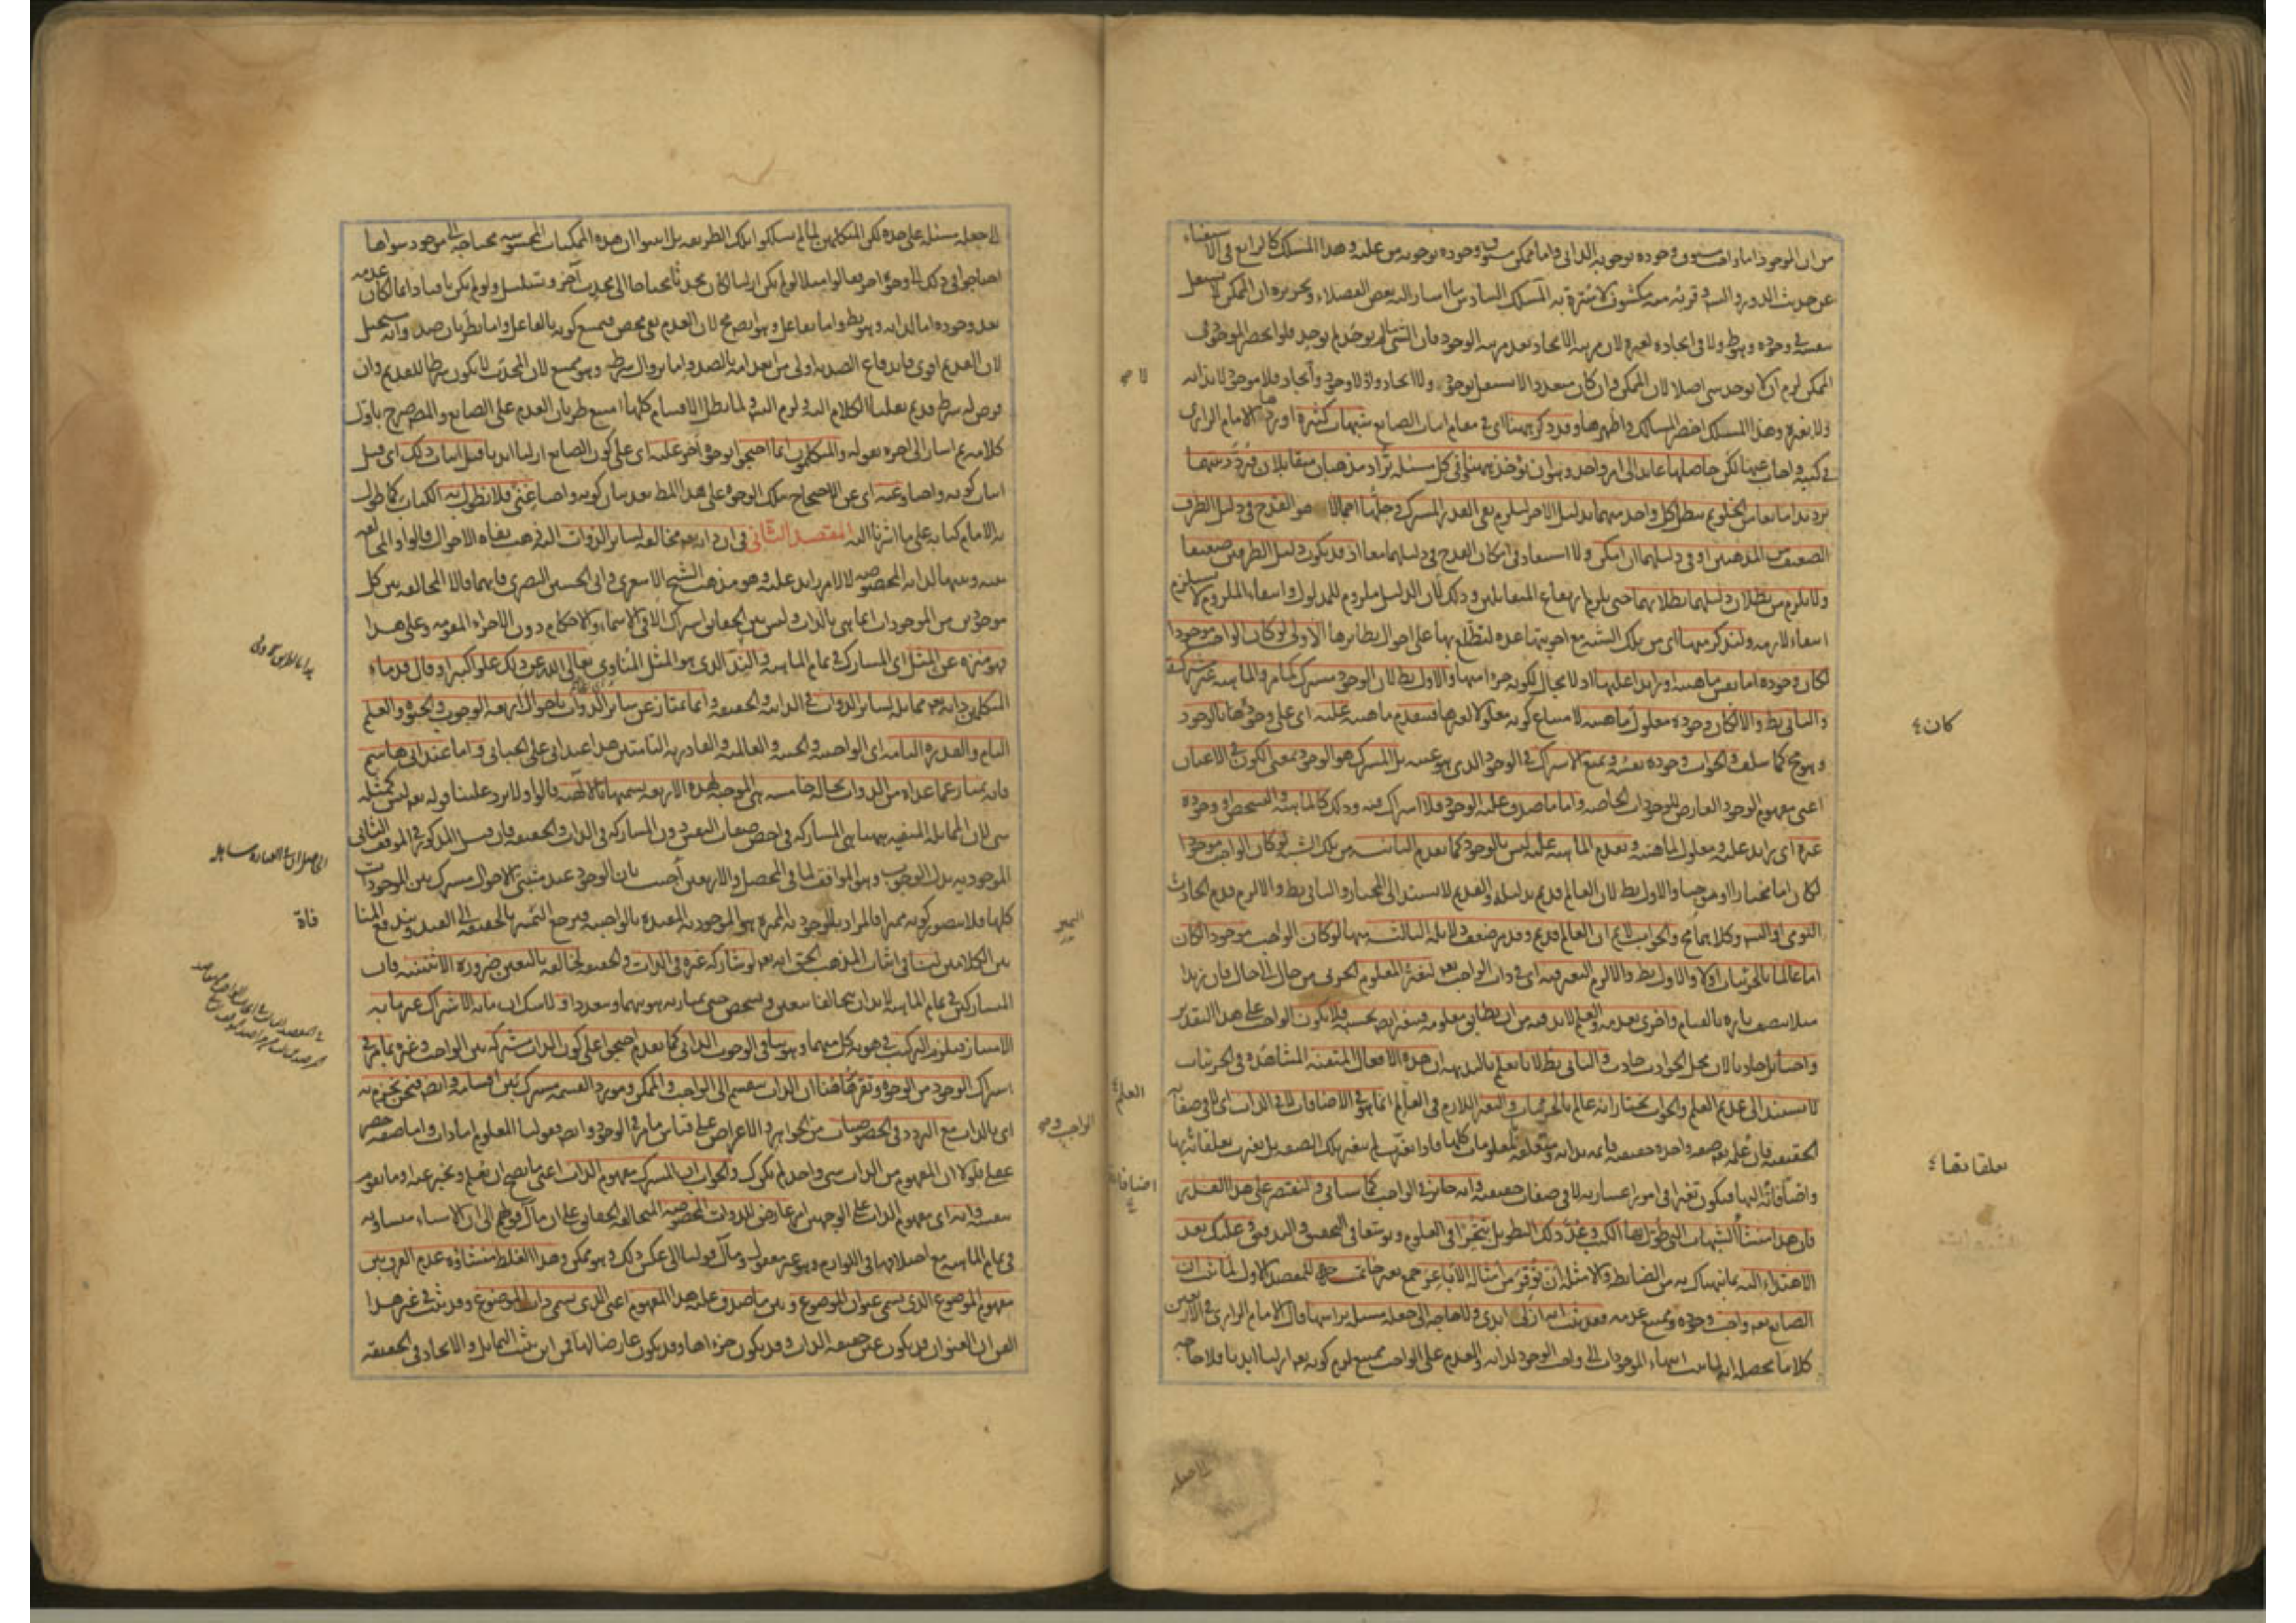 من ان الموجود اما واجب مستغن في وجوده بوجوبه الذاتي واما ممكن وجوده بوجوبه من علته وهذا المسلك كالرابع في الاستغناء
عن حديث الدور والتسلسل وقربه منه مكشوف لا سترة به المسلك السادس ما اشار اليه بعض الفضلاء وتحريره ان الممكن لا يستقل
بنفسه في وجوده وهو ظ ولا في ايجاده لغيره لان مرتبة الايجاد بعد مرتبة الوجود فان الشئ ما لم يوجد لم يوجد فلو انحصر الموجود في
الممكن لزم ان لا يوجد شئ اصلا لان الممكن وان كان متعددا لا يستقل بوجود ولا ايجاد واذ لا وجود ولا ايجاد فلا موجود لا بذاته
ولا بغيره وهذا المسلك اخصر المسالك واظهرها وقد ذكر ههنا اي في مقام اثبات الصانع شبهات كثيرة اوردها الامام الرازي
في كتبه واجاب عنها لكن حاصلها عائد الى امر واحد وهو ان يؤخذ ههنا وفي كل مسئلة تراد مذهبان متقابلان فيردد بينهما
ترديدا مانعا من الخلو ثم يبطل كل واحد منهما بدليل الاخر ليلزم نفي القدر المشترك وحلها اجمالا هو القدح في دليل الطرف
الضعيف من المذهبين او في دليلهما ان امكن ولا استبعاد في امكان القدح في دليلهما معا اذ قد يكون دليل الطرفين ضعيفا
ولا يلزم من بطلان دليلهما بطلانهما حتى يلزم ارتفاع المتقابلين وذلك لان الدليل ملزوم للمدلول وانتفاء الملزوم لا يستلزم
انتفاء لازمه ولنذكر منها اي من تلك الشبه مع اجوبتها عدة لتطلع بها على احوال نظائرها الاولى لو كان الواجب موجودا
لكان وجوده اما نفس ماهيته او زائدا عليها اذ لا مجال لكونه جزءا منها والاول بط لان الوجود مشترك كما مر والماهية غير مشتركة
والثاني بط والا لكان وجوده معلول ماهيته لامتناع كونه معلولا لغيرها فتتقدم ماهيته عليه اي على وجودها بالوجود
وهو مح كما سلف والجواب وجوده نفسه ونمنع الاشتراك في الوجود الذي هو عينه بل المشترك هو الوجود بمعنى الكون في الاعيان
اعني مفهوم الوجود العارض للوجودات الخاصة واما ما صدق عليه الوجود فلا اشتراك فيه وذلك كالماهية والتشخص او وجوده
غيره اي زائد عليه ومعلول لماهيته وتقدم الماهية عليه ليس بالوجود كما تقدم الثانية من تلك الشبه لو كان الواجب موجودا
لكان اما مختارا او موجبا والاول بط لان العالم قديم بدليله والقديم لا يستند الى المختار والثاني بط والا لزم قدم الحادث
اليومي او التسلسل وكلاهما مح والجواب لا نم ان العالم قديم وقد مر ضعف دلائله الثالثة منها لو كان الواجب موجودا لكان
اما عالما بالجزئيات او لا والاول بط والا لزم التغير فيه اي في ذات الواجب تعه لتغير المعلوم الجزئي من حال الى حال فان زيدا
مثلا يتصف تارة بالقيام واخرى بعدمه والعلم لا بد فيه من ان يطابق معلومه فيتغير بحسبه فلا يكون الواجب على هذا التقدير
واجبا بل حادثا لان محل الحوادث حادث والثاني بط لانا نعلم بالبديهة ان هذه الافعال المتقنة المشاهدة في الجزئيات
لا تستند الى عديم العلم والجواب نختار انه عالم بالجزئيات والتغير اللازم في العالم انما هو في الاضافات لا في الذات اي لا في صفاته
الحقيقية فان علمه تعه صفة واحدة حقيقية قائمة بذاته ومتعلقة بالمعلومات كلها فاذا تغيرت لم يتغير تلك الصفة بل تغيرت تعلقاتها بها
واضافاته اليها فيكون تغيرا في امور اعتبارية لا في صفات حقيقية وانه جائز في الواجب كما سيأتي ولنقتصر على هذا القدر
فان هذا منشأ الشبهات التي طول بها الكتب وعد ذلك التطويل تبحرا في العلوم وتوسعا في التحقيق والتدقيق وعليك بعد
الاهتداء اليه بما نبهناك به من الضابط والامثلة ان توقر من امثاله الاباعر جمع بعير خاتمة للمقصد الاول لما ثبت ان
الصانع تعه واجب وجوده وممتنع عدمه فقد ثبت انه ازلي ابدي ولا حاجة الى جعله مسئلة برأسها قال الامام الرازي في الاربعين
كلاما محصله انه لما ثبت انتهاء الموجودات الى واجب الوجود لذاته والعدم على الواجب ممتنع لزم كونه تعه ازليا ابديا فلا حاجة
لا
كان
تعلقاتها
العلم
اضافاته
الى جعله
الى جعله مسئلة على حدة لكن المتكلمين لما لم يسلكوا تلك الطريقة بل اثبتوا ان هذه الممكنات المحسوسة محتاجة الى موجود سواها
احتاجوا في ذلك الى وجوه اخر فقالوا مثلا لو لم يكن ازليا لكان محدثا محتاجا الى محدث آخر وتسلسل ولو لم يكن باقيا دائما لكان عدمه
بعد وجوده اما لذاته وهو بط واما بفاعل وهو ايض مح لان العدم نفي محض فيمتنع كونه بالفاعل واما بطريان ضد وانه يستحيل
لان القديم اقوى فاندفاع الضد به اولى من انعدامه بالضد واما بزوال شرطه وهو ممتنع لان المحدث لا يكون شرطا للقديم وان
فرض له شرط قديم نقلنا الكلام اليه ولزم التسلسل ولما بطل الاقسام كلها امتنع طريان العدم على الصانع والمص صرح باول
كلامه ثم اشار الى اخره بقوله والمتكلمون انما احتجوا بوجوه اخر عليه اي على كون الصانع ازليا ابديا قبل اثبات ذلك اي قبل
اثبات كونه واجبا وعنه اي عن الاحتجاج بتلك الوجوه على هذا المط بعد بيان كونه واجبا غنى فلا نطول به الكتاب كما طول
به الامام كتابه على ما اشرنا اليه المقصد الثاني في ان ذاته تعه مخالفة لسائر الذوات اليه ذهب نفاة الاحوال قالوا والمخالفة
بينه وبينها لذاته المخصوصة لا لامر زائد عليه وهو مذهب الشيخ الاشعري وابي الحسين البصري فانهما قالا المخالفة بين كل
موجودين من الموجودات انما هي بالذات وليس بين الحقائق اشتراك الا في الاسماء والاحكام دون الاجزاء المقومة وعلى هذا
فهو منزه عن المثل اي المشارك في تمام الماهية والند الذي هو المثل المناوي تعالى الله عن ذلك علوا كبيرا وقال قدماء
المتكلمين ذاته تعه مماثلة لسائر الذوات في الذاتية والحقيقة وانما تمتاز عن سائر الذوات باحوال اربعة الوجوب والحيوة والعلم
التام والقدرة التامة اي الواجبية والحيية والعالمية والقادرية التامتين هذا عند ابي علي الجبائي واما عند ابي هاشم
فانه يمتاز عما عداه من الذوات بحالة خامسة هي الموجبة لهذه الاربعة يسميها بالالهية قالوا ولا يرد علينا قوله تعه ليس كمثله
شئ لان المماثلة المنفية ههنا هي المشاركة في اخص صفات النفس دون المشاركة في الذات والحقيقة فان قيل المذكور في الموقف الثاني
الموجودية بدل الوجوب وهو الموافق لما في المحصل والاربعين اجيب بان الوجود عند مثبتي الاحوال مشترك بين الموجودات
كلها فلا يتصور كونه مميزا فالمراد بالموجودية المميزة هو الموجودية المقيدة بالواجبية فيرجع التميز بالحقيقة الى القيد ويندفع المنافاة
بين الكلامين لنا في اثبات المذهب الحق انه تعه لو شاركه غيره في الذات والحقيقة لخالفه بالتعين ضرورة الاثنينية فان
المتشاركين في تمام الماهية لا بد ان يتخالفا بتعين وتشخص حتى يمتاز به هويتهما ويتعددا ولا شك ان ما به الاشتراك غير ما به
الامتياز فيلزم التركيب في هوية كل منهما وهو ينافي الوجوب الذاتي كما تقدم احتجوا على كون الذات مشتركة بين الواجب وغيره بما مر في
اشتراك الوجود من الوجوه وتقريرها هنا ان الذات تنقسم الى الواجب والممكن ومورد القسمة مشترك بين اقسامه وايض فنحن نجزم به
اي بالذات مع التردد في الخصوصيات من الجواهر والاعراض على قياس ما مر في الوجود وايض فقولنا المعلوم اما ذات واما صفة حصر
عقلي فلولا ان المفهوم من الذات شئ واحد لم يكن كذلك والجواب ان المشترك مفهوم الذات اعني ما يصح ان يعلم ويخبر عنه او ما يقوم
بنفسه وانه اي مفهوم الذات على الوجهين امر عارض للذوات المخصوصة المتخالفة الحقائق على ان مآل قولهم الى ان الاشياء متساوية
في تمام الماهية مع اختلافها في اللوازم وهو غير معقول ومآل قولنا الى عكس ذلك وهو ممكن وهذا الغلط منشاؤه عدم الفرق بين
مفهوم الموضوع الذي يسمى عنوان الموضوع وبين ما صدق عليه هذا المفهوم اعني الذي يسمى ذات الموضوع وقد ثبت في غير هذا
الفن ان العنوان قد يكون عين حقيقة الذات وقد يكون جزءها وقد يكون عارضا لها فمن اين يثبت التماثل والاتحاد في الحقيقة
فاة
التميز